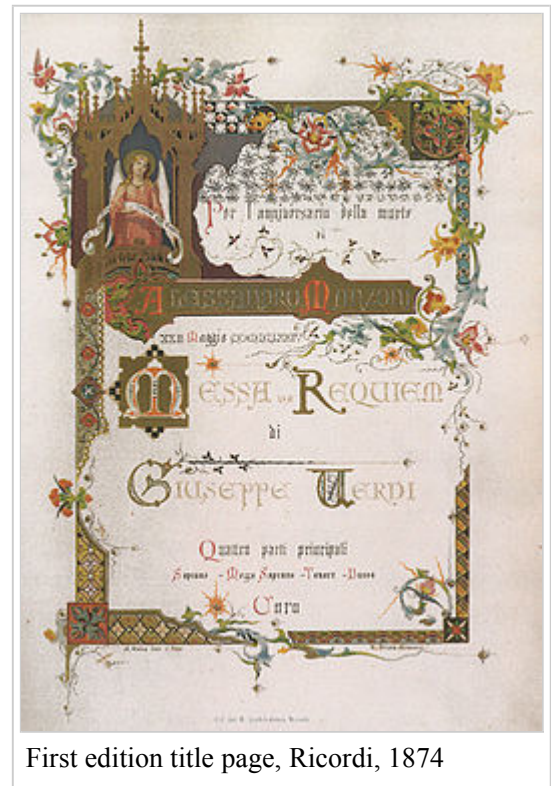 Per l'anniversario della morte
di
ALESSANDRO MANZONI
XXII Maggio MDCCCLXXIV
MESSA DA REQUIEM
di
GIUSEPPE VERDI
Quattro parti principali
Soprano - Mezzo Soprano - Tenore - Basso
Coro
First edition title page, Ricordi, 1874